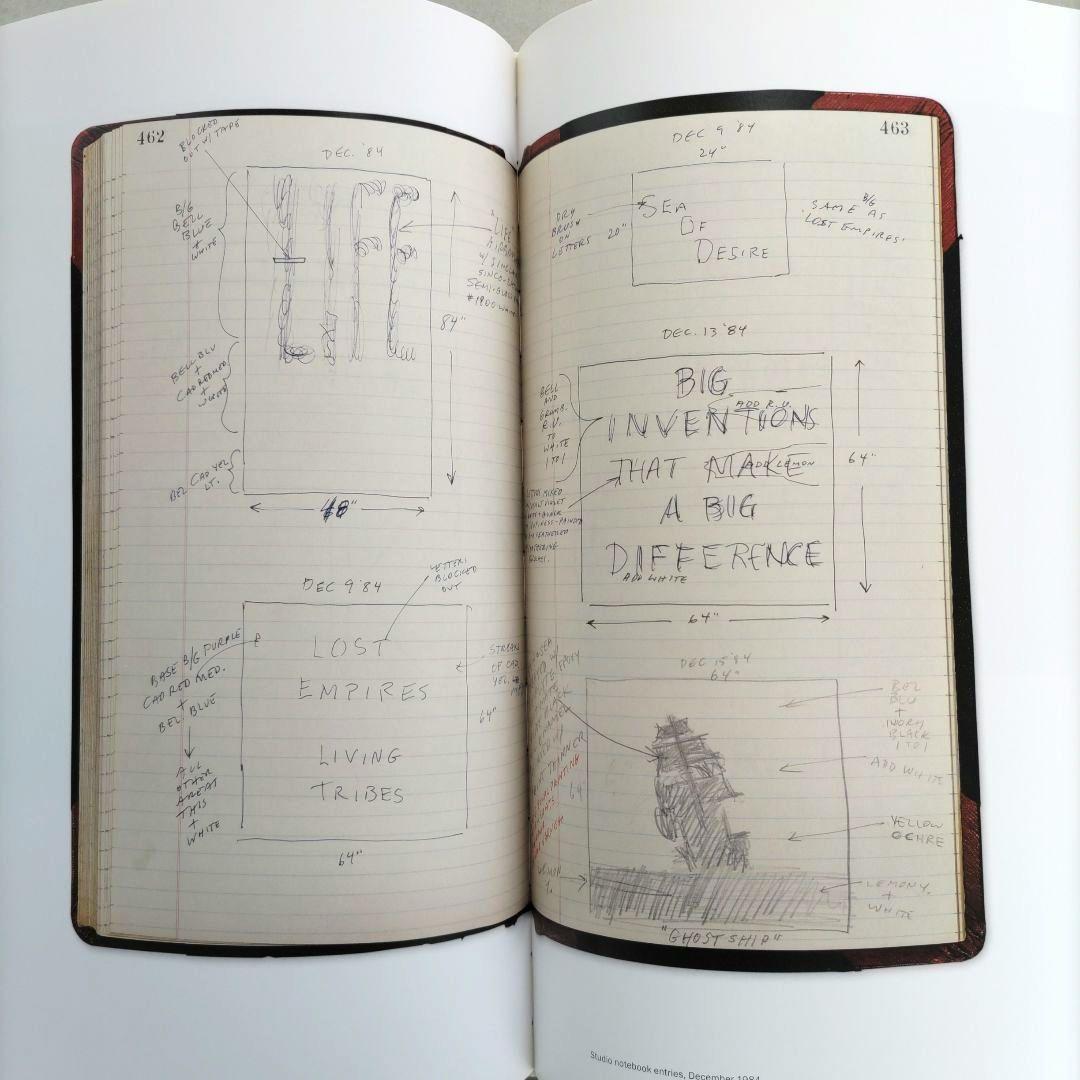 462
BLOCKED
OUT W/ TAPE
DEC. '84
B/G
BELL
BLUE
+
WHITE
LIFE
"LIFE
84"
BELL BLU
+
CAD RED MED
+
WHITE
BEL CAD YEL
LT.
48"
DEC 9 '84
LETTERS
BLOCKED
OUT
BASE B/G PURPLE
CAD RED MED.
+
BEL BLUE
ALL
OTHER
AREAS
THIS
+
WHITE
LOST
EMPIRES
LIVING
TRIBES
OF CAD
YEL.
64"
64"
463
DEC 9 '84
24"
DRY
BRUSH
ON
LETTERS
20"
SEA
OF
DESIRE
B/G
SAME AS
LOST EMPIRES.
DEC. 13 '84
BELL
AND
R.V.
TO
WHITE
1 TO 1
BIG
ADD R.V.
INVENTIONS
THAT MAKE
ADD LEMON
A BIG
DIFFERENCE
ADD WHITE
64"
64"
DEC 15 '84
64"
BEL
BLU
+
IVORY
BLACK
1 TO 1
ADD WHITE
YELLOW
OCHRE
LEMON Y.
+
WHITE
EPOXY
BLACK
THINNER
64"
LEMON
Y.
"GHOST SHIP"
Studio notebook entries, December 1984